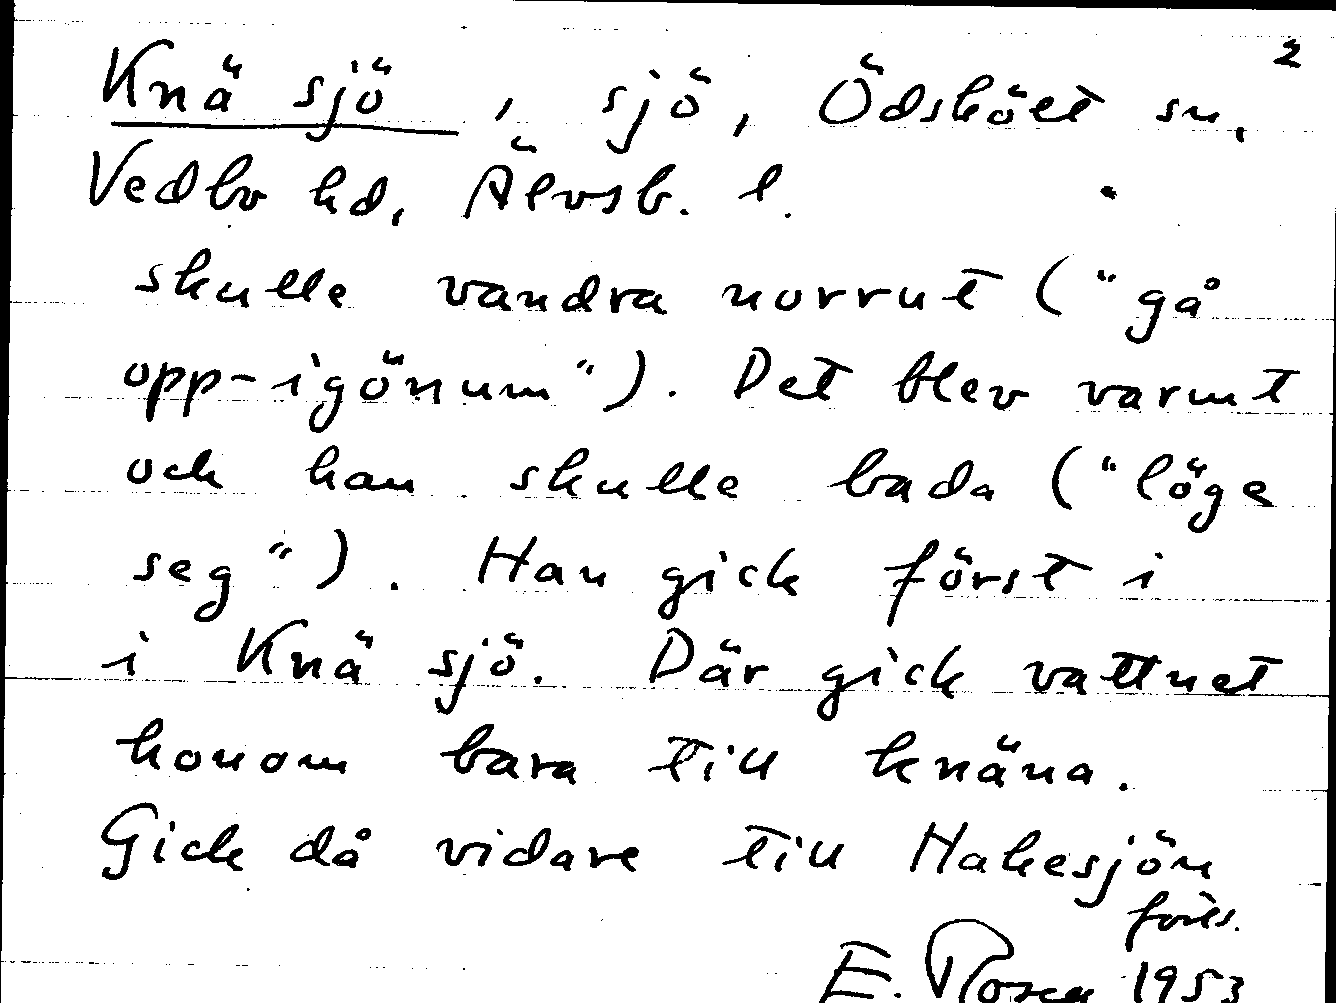 2
Knä sjö, sjö, Ödskölt sn,
Vedbo hd, Älvsb. l.
skulle vandra norrut ("gå
opp-igönum"). Det blev varmt
och han skulle bada ("löge
seg"). Han gick först i
i Knä sjö. Där gick vattnet
honom bara till knäna.
Gick då vidare till Hakesjön
forts.
E. Rosen 1953